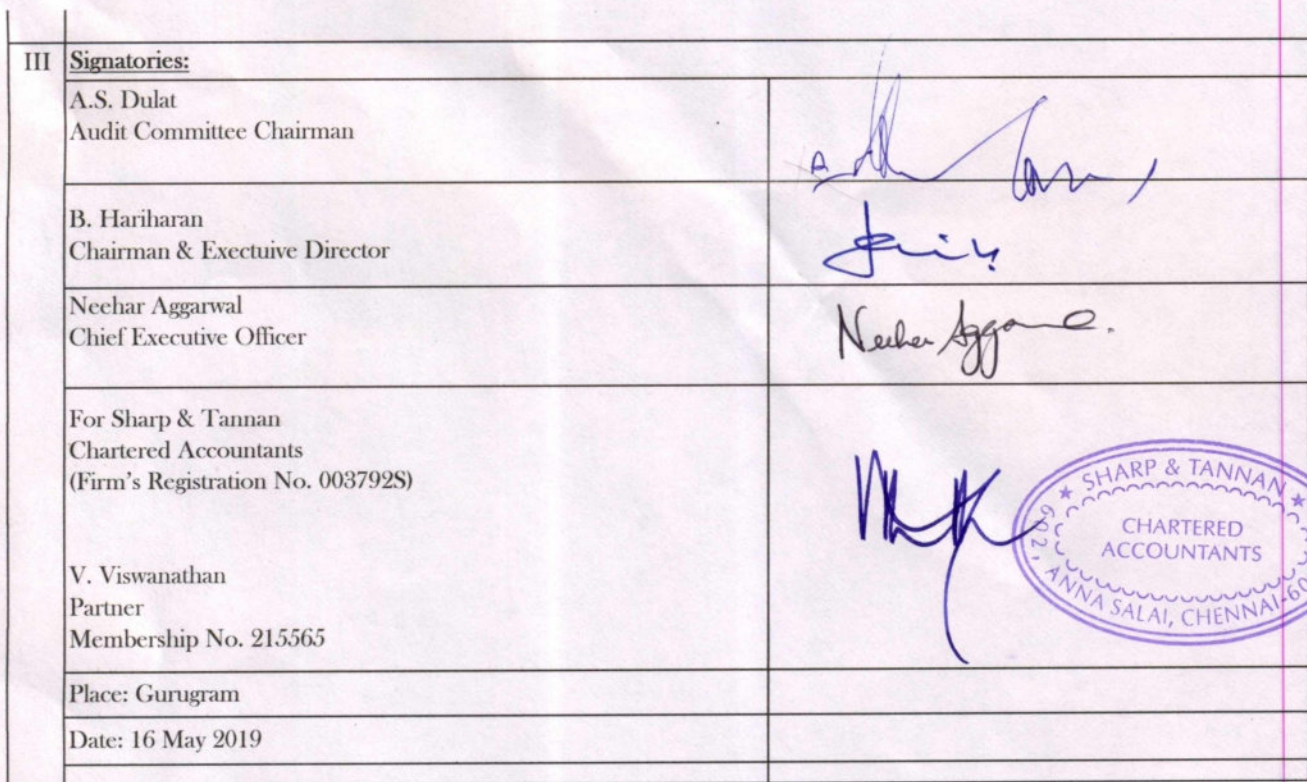 III Signatories:
A.S. Dulat
Audit Committee Chairman
B. Hariharan
Chairman & Exectuive Director
Neehar Aggarwal
Chief Executive Officer
Neehar Aggarwal.
For Sharp & Tannan
Chartered Accountants
(Firm's Registration No. 003792S)
V. Viswanathan
Partner
Membership No. 215565
★ SHARP & TANNAN ★
CHARTERED
ACCOUNTANTS
ANNA SALAI, CHENNAI-60
Place: Gurugram
Date: 16 May 2019